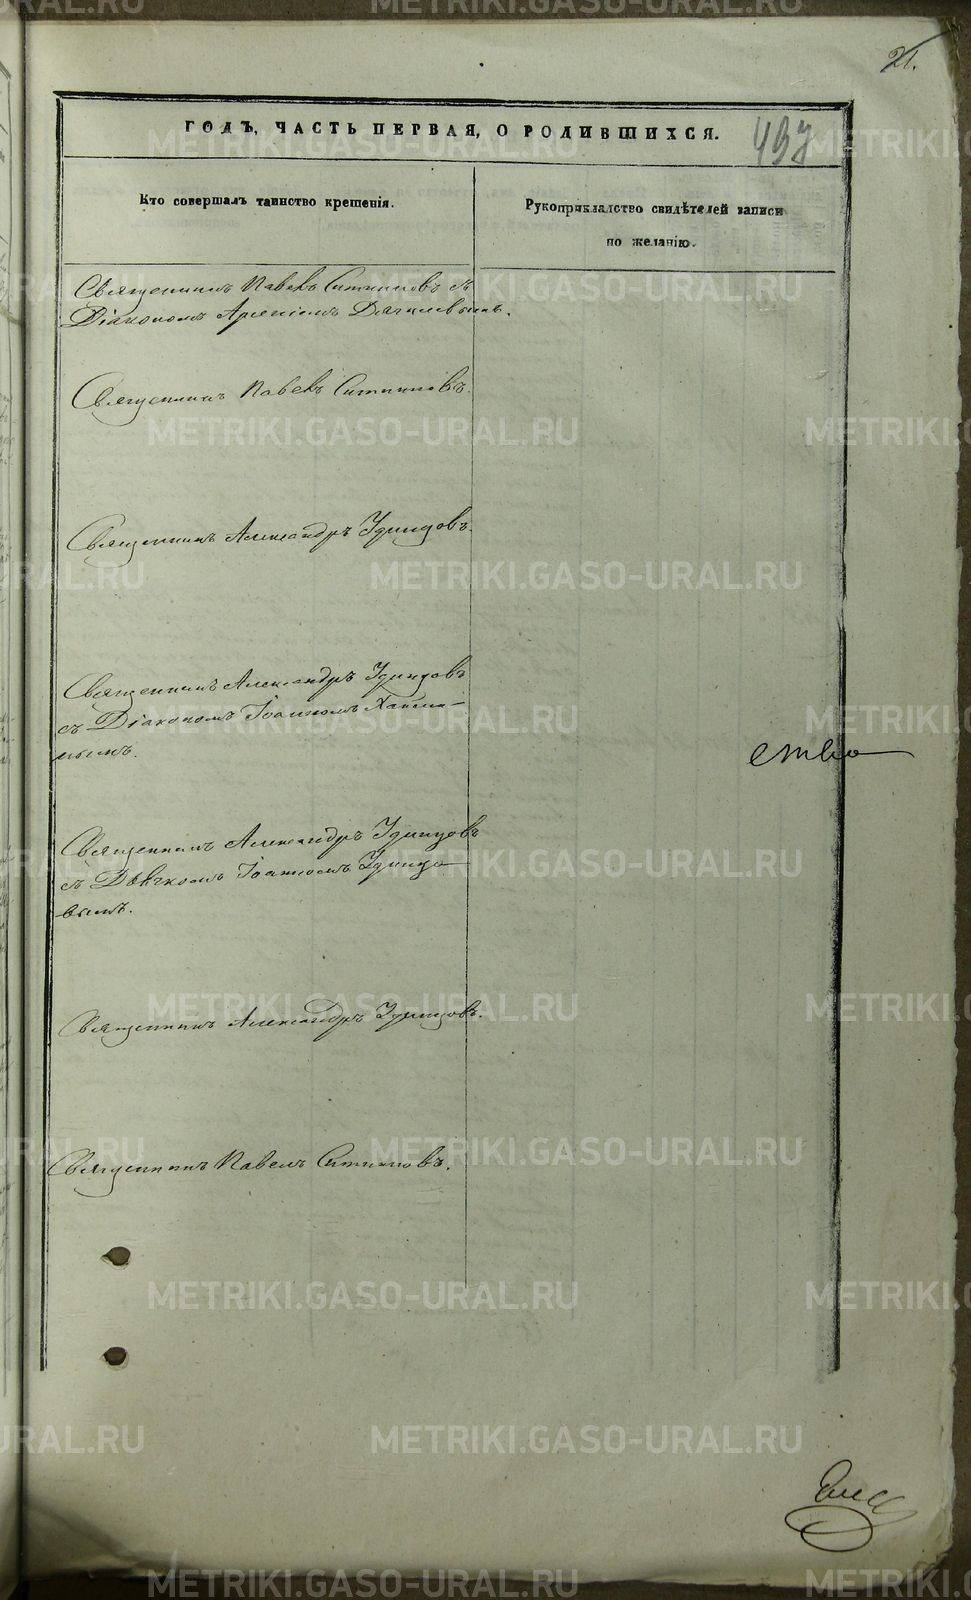 21.
ГОДЪ, ЧАСТЬ ПЕРВАЯ, О РОДИВШИХСЯ.
497
Кто совершалъ таинство крещенія.
Рукоприкладство свидѣтелей записи
по желанію.
Священникъ Павелъ Ситниковъ съ
Діакономъ Арсеніемъ Дягилевымъ.
Священникъ Павелъ Ситниковъ.
Священникъ Александръ Удинцовъ.
Священникъ Александръ Удинцовъ
съ Діакономъ Іоанномъ
нымъ.
ство
Священникъ Александръ Удинцовъ
съ Дьячкомъ Іоанномъ Удинцо-
вымъ.
Священникъ Александръ Удинцовъ.
Священникъ Павелъ Ситниковъ.
METRIKI.GASO-URAL.RU